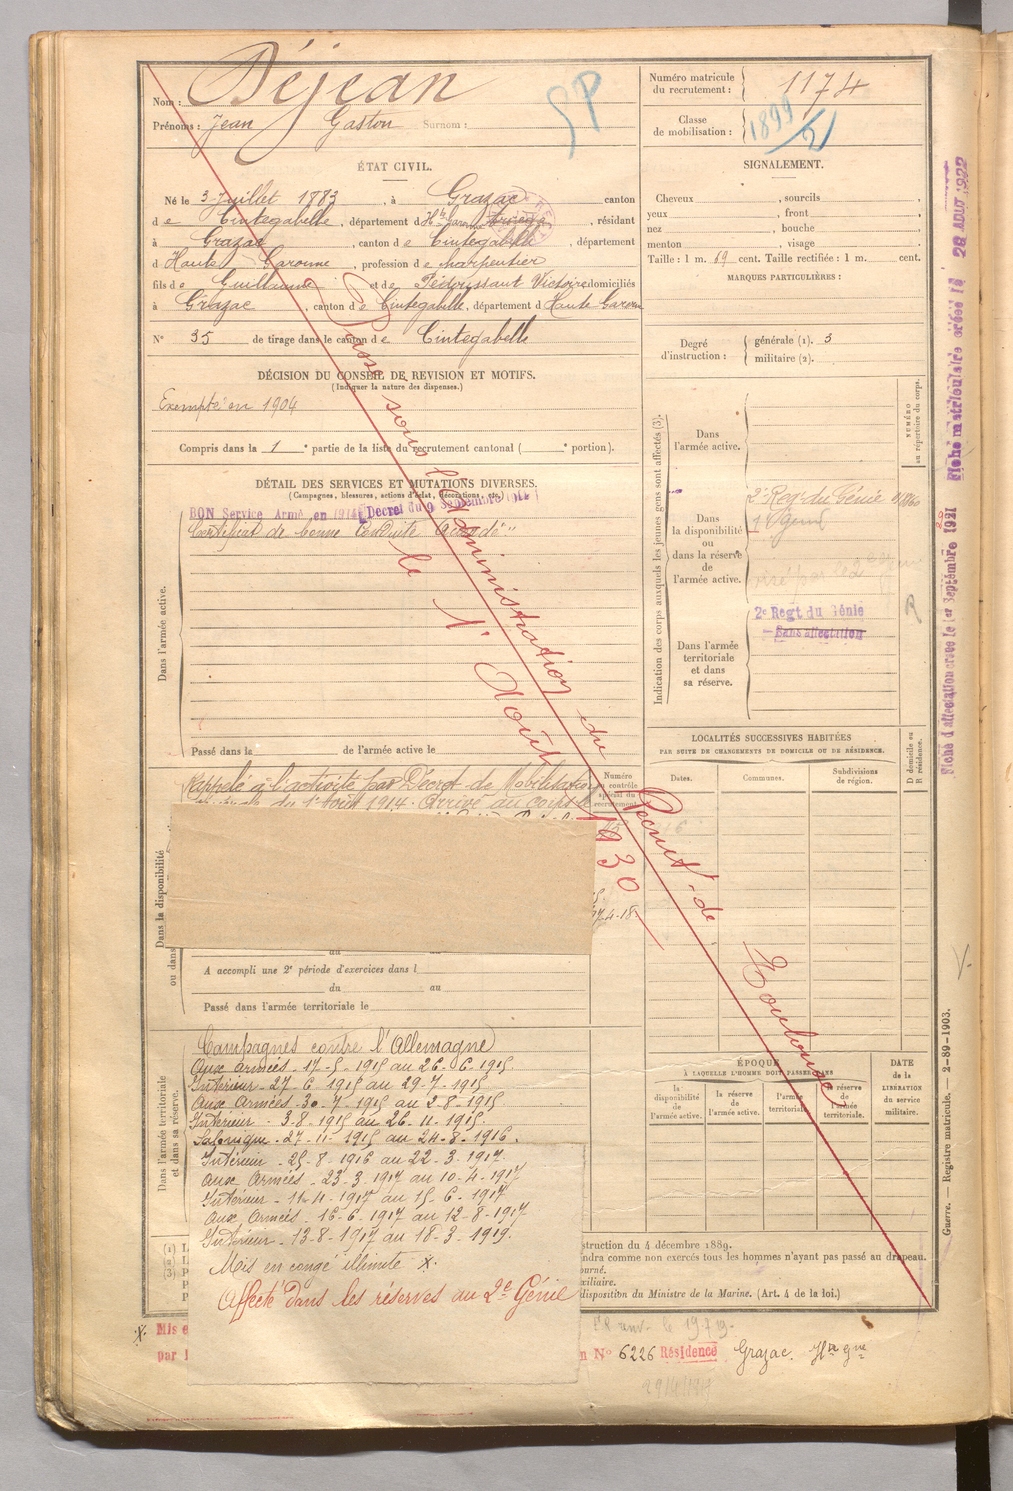 Nom : Déjean
Prénoms : Jean Gaston Surnom :
SP
Numéro matricule du recrutement : 1174
Classe de mobilisation : 1899
ÉTAT CIVIL.
Né le 3 Juillet 1883, à Grazac canton
de Cintegabelle, département d Hte Garonne Ariège, résidant
à Grazac, canton de Cintegabelle, département
d Haute Garonne, profession de charpentier
fils de Guillaume et de Pédrussant Victoire domiciliés
à Grazac, canton de Cintegabelle, département d Haute Garonne
N° 35 de tirage dans le canton de Cintegabelle
SIGNALEMENT.
Cheveux , sourcils ,
yeux , front ,
nez , bouche ,
menton , visage .
Taille : 1 m. 69 cent. Taille rectifiée : 1 m. cent.
MARQUES PARTICULIÈRES :
Degré d'instruction : générale (1). 3
militaire (2).
DÉCISION DU CONSEIL DE REVISION ET MOTIFS.
(Indiquer la nature des dispenses.)
Exempté en 1904
Compris dans la 1 e partie de la liste du recrutement cantonal ( e portion).
DÉTAIL DES SERVICES ET MUTATIONS DIVERSES.
(Campagnes, blessures, actions d'éclat, décorations, etc.)
BON Service Armé en 1914 Décret du 9 Septembre 1914
Certificat de bonne Conduite "Accordé"
Dans l'armée active.
Passé dans le de l'armée active le
Indication des corps auxquels les jeunes gens sont affectés (3).
NUMÉRO au répertoire du corps.
Dans l'armée active.
Dans la disponibilité ou dans la réserve de l'armée active.
2e Reg. du Génie
Dans l'armée territoriale et dans sa réserve.
2e Regt du Génie
Sans affectation
R
Passé sous l'Administration du Recrut. de Toulouse
le 1er Août 1930
LOCALITÉS SUCCESSIVES HABITÉES
PAR SUITE DE CHANGEMENTS DE DOMICILE OU DE RÉSIDENCE.
Dates. Communes. Subdivisions de région. D domicile ou R résidence.
Rappelé à l'activité par Décret de Mobilisation
du 1er Août 1914. Arrivé au corps le
Numéro au contrôle spécial du recrutement
Dans la disponibilité
ou dans
7-4-18
au
A accompli une 2e période d'exercices dans l
du au
Passé dans l'armée territoriale le
Dans l'armée territoriale et dans sa réserve.
Campagnes contre l'Allemagne
Aux Armées - 17-5-1915 au 26-6-1915
Intérieur - 27-6 1915 au 29-7-1915
Aux Armées - 30-7-1915 au 2-8-1915
Intérieur - 3-8-1915 au 26-11-1915.
Salonique - 27-11-1915 au 24-8-1916.
Intérieur - 25-8-1916 au 22-3-1917.
Aux Armées - 23-3-1917 au 10-4-1917
Intérieur - 11-4-1917 au 15-6-1917
Aux Armées - 16-6-1917 au 12-8-1917
Intérieur - 13-8-1917 au 18-3-1919.
Mis en congé illimité X.
Affecté dans les réserves au 2e Génie
ÉPOQUE
À LAQUELLE L'HOMME DOIT PASSER DANS
la disponibilité de l'armée active. la réserve de l'armée active. l'armée territoriale. la réserve de l'armée territoriale.
DATE de la LIBÉRATION du service militaire.
(1)
(2)
(3)
struction du 4 décembre 1889.
ndra comme non exercés tous les hommes n'ayant pas passé au drapeau.
ourné.
xiliaire.
disposition du Ministre de la Marine. (Art. 4 de la loi.)
X. Mis e
par l
n N° 6226 Résidence Grazac. Hte Gne
Fiche d'affectation créée le 1er Septembre 1921
Fiche matriculaire créée le 28 AOUT 1922
Guerre. — Registre matricule. — 2-89-1903.